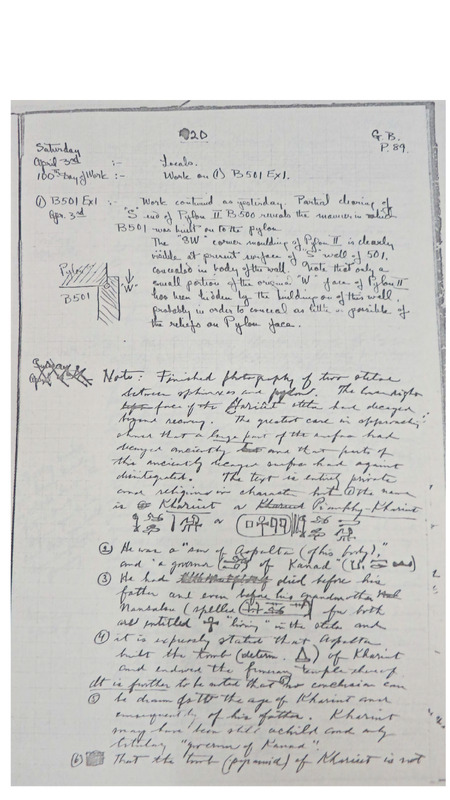 20
G.B.
P. 89.
Saturday
April 3rd :- Locals.
100th Day of Work :- Work on (1) B501 Ex1.
(1) B501 Ex1 :- Work continued as yesterday. Partial clearing of
Apr. 3rd "S" end of Pylon II B.500 reveals the manner in which
B501 was built on to the pylon.
The "SW" corner moulding of Pylon II is clearly
visible at present surface of "S" wall of 501,
concealed in body of the wall. Note that only a
small portion of the original "W" face of Pylon II
has been hidden by the building on of this wall,
probably in order to conceal as little as possible of
the reliefs on Pylon face.
Pylon
B501
W
Note: Finished photography of two stelae
between sphinxes and pylon. The
face of the Khariut stela had decayed
beyond recovery. The greatest care in approaching
shows that a large part of the surface had
decayed anciently and that parts of
the anciently decayed surface had against
disintegrated. The text is entirely private
and religious in character but the name
is Khariut or Khareud Piankhy-Khariut
or
(2) He was a "son of Aspalta (of his body),"
and a governor of Kanad"
(3) He had died before his
father and even before his grandmother
Nansalsa (spelled for both
are entitled "living" in the stela and
(4) it is expressly stated that Aspalta
built the tomb (determ. ) of Khariut
and endowed the funerary temple thereof.
It is further to be noted that no conclusion can
(5) be drawn as to the age of Khariut and
consequently of his father. Khariut
may have been still a child and only
titulary "governor of Kanad".
(6) That the tomb (pyramid) of Khariut is not